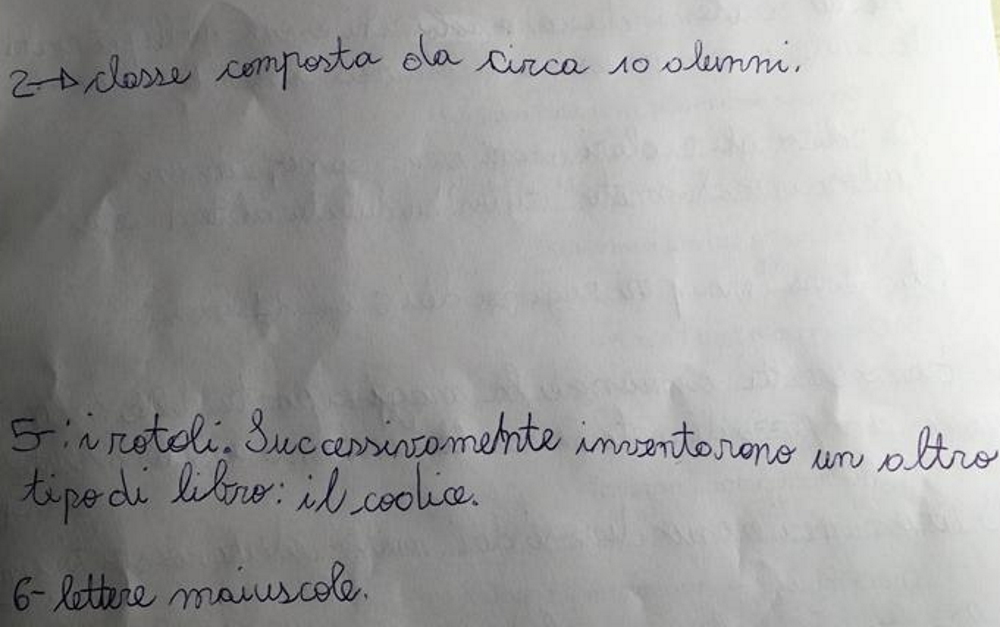 2→classe composta da circa 10 alunni.
5-: i rotoli. Successivamente inventarono un altro
tipo di libro: il codice.
6- lettere maiuscole.